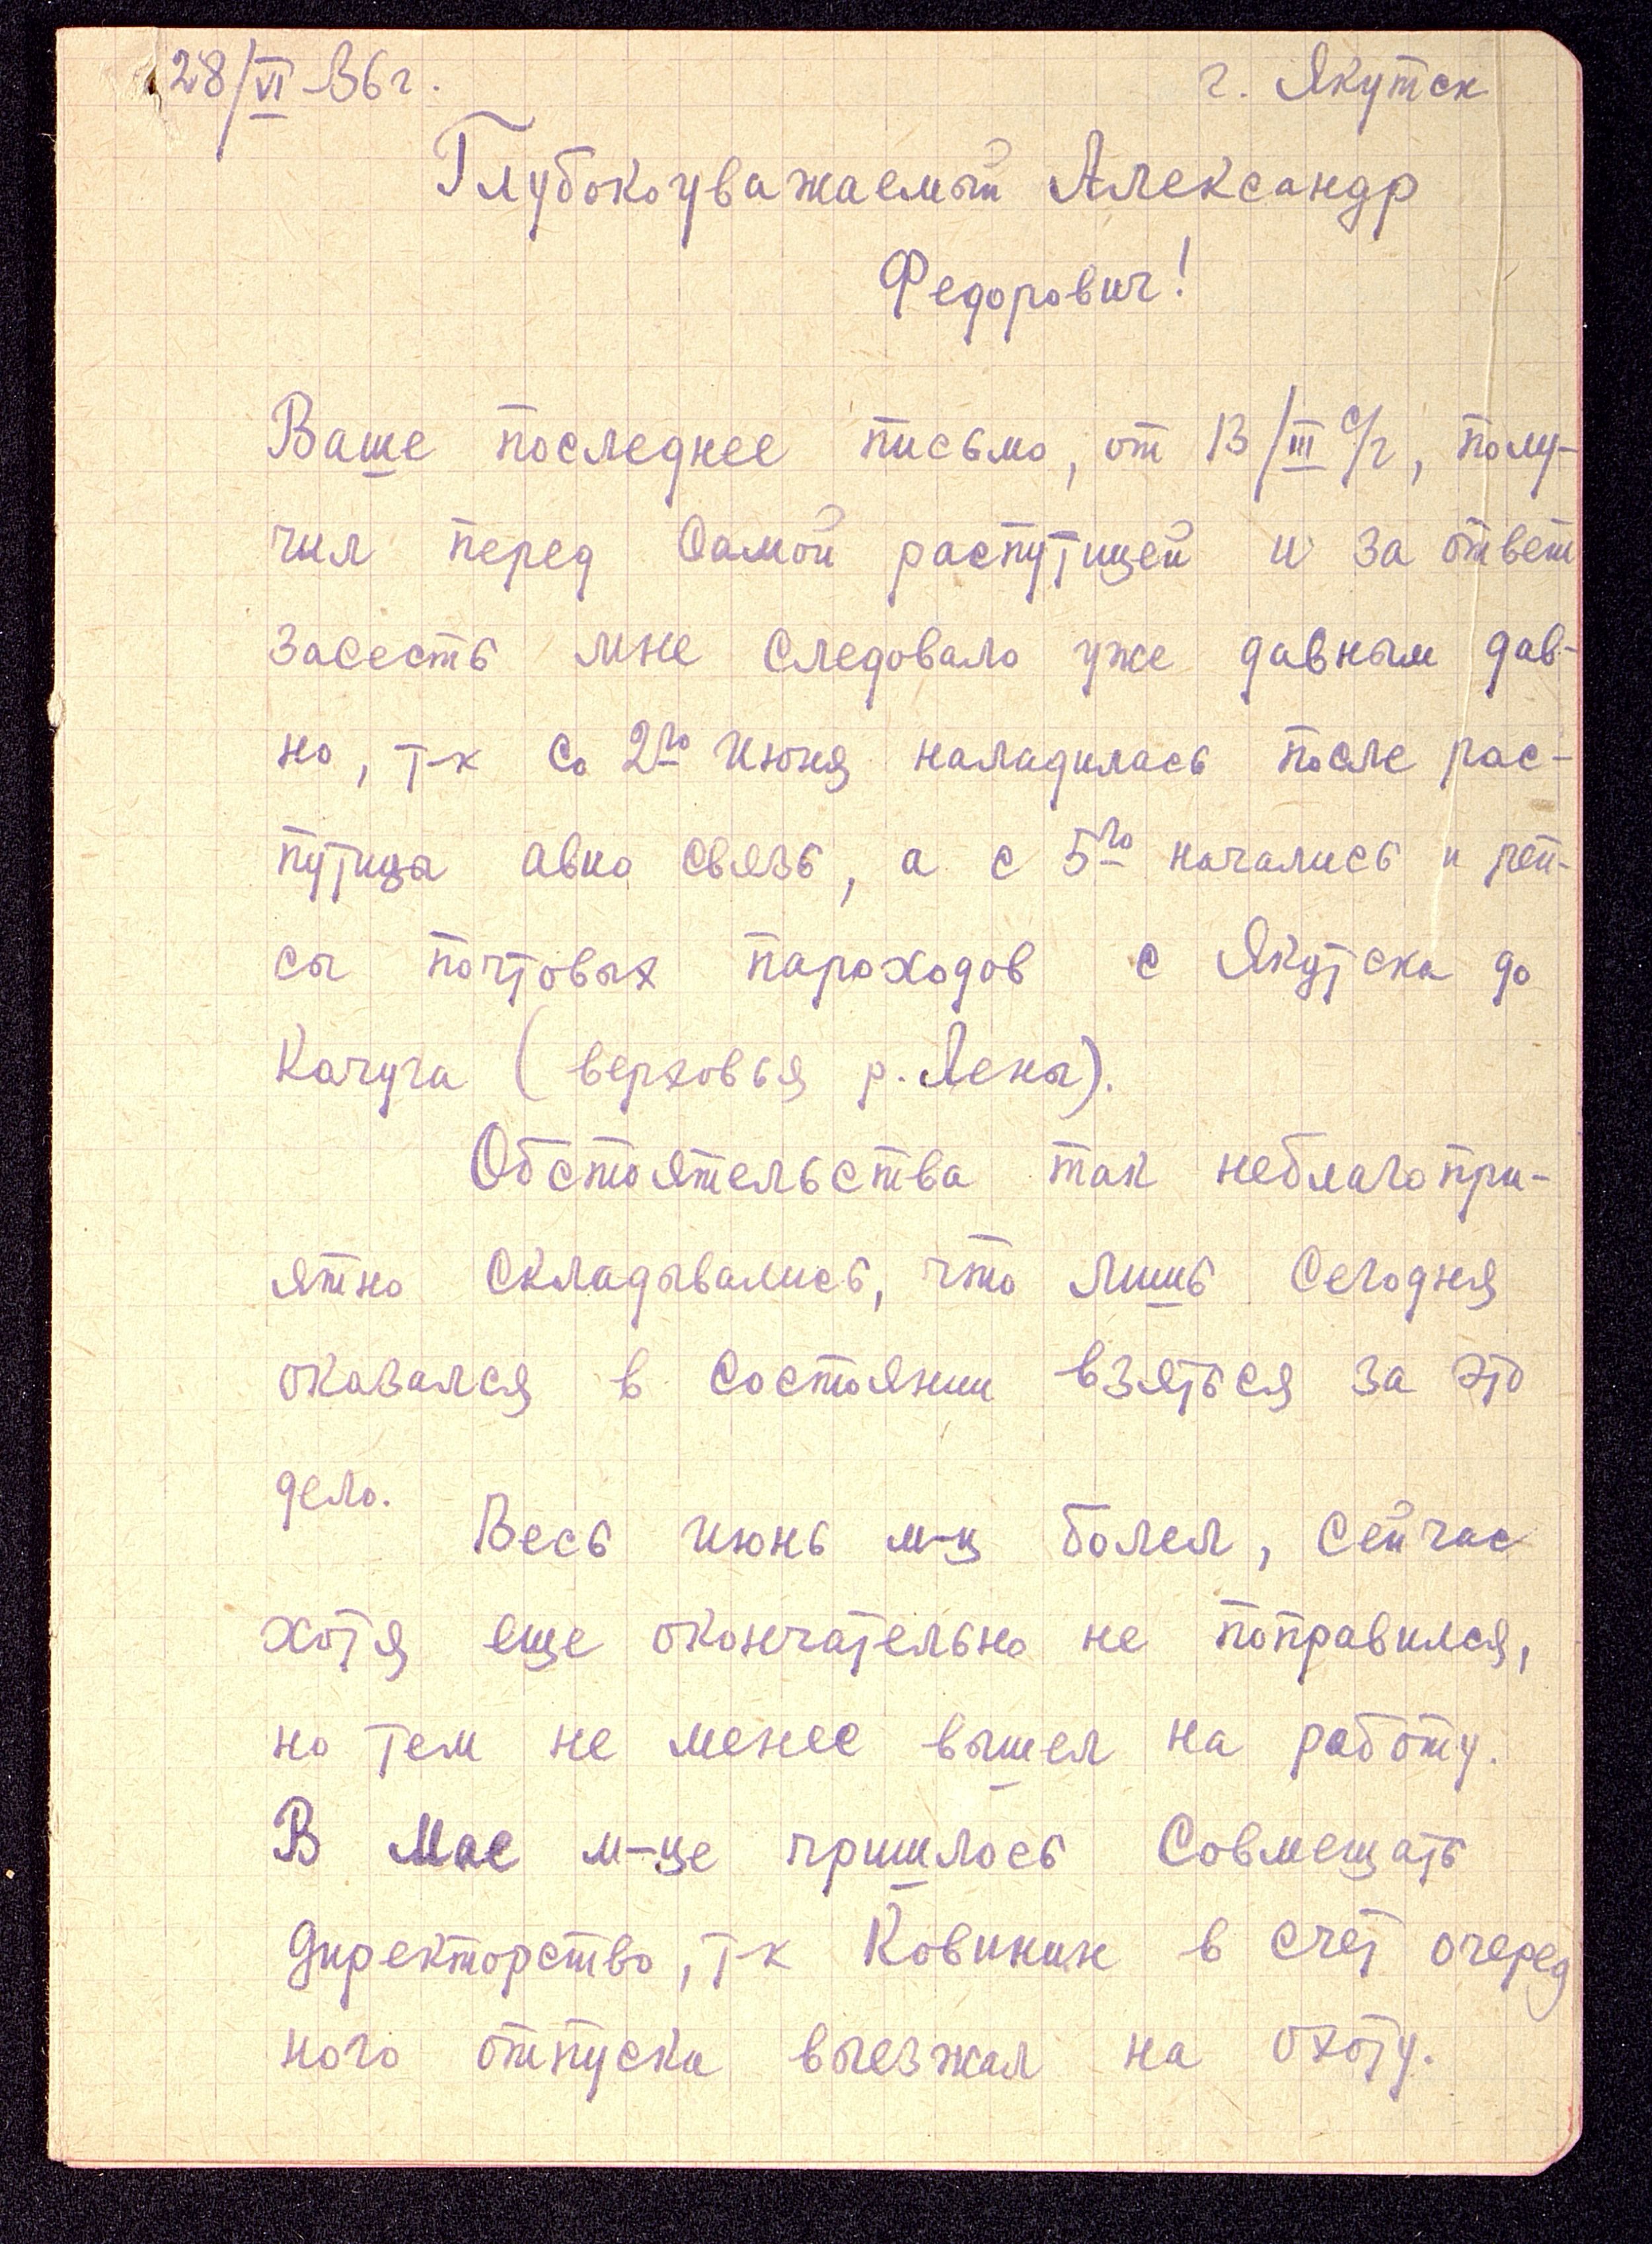 28/VI-36г.
г. Якутск
Глубокоуважаемый Александр
Федорович!
Ваше последнее письмо, от 13/III с/г, полу-
чил перед самой распутицей и за ответ
засесть мне следовало уже давным дав-
но, т-к со 2го июня наладилась после рас-
путицы авио связь, а с 5го начались и рей-
сы почтовых пароходов с Якутска до
Качуга (верховья р. Лены).
Обстоятельства так неблагопри-
ятно складывались, что лишь сегодня
оказался в состоянии взяться за это
дело.
Весь июнь м-ц болел, сейчас
хотя еще окончательно не поправился,
но тем не менее вышел на работу.
В Мае м-це пришлось совмещать
директорство, т-к Ковинин в счет очеред
ного отпуска выезжал на охоту.